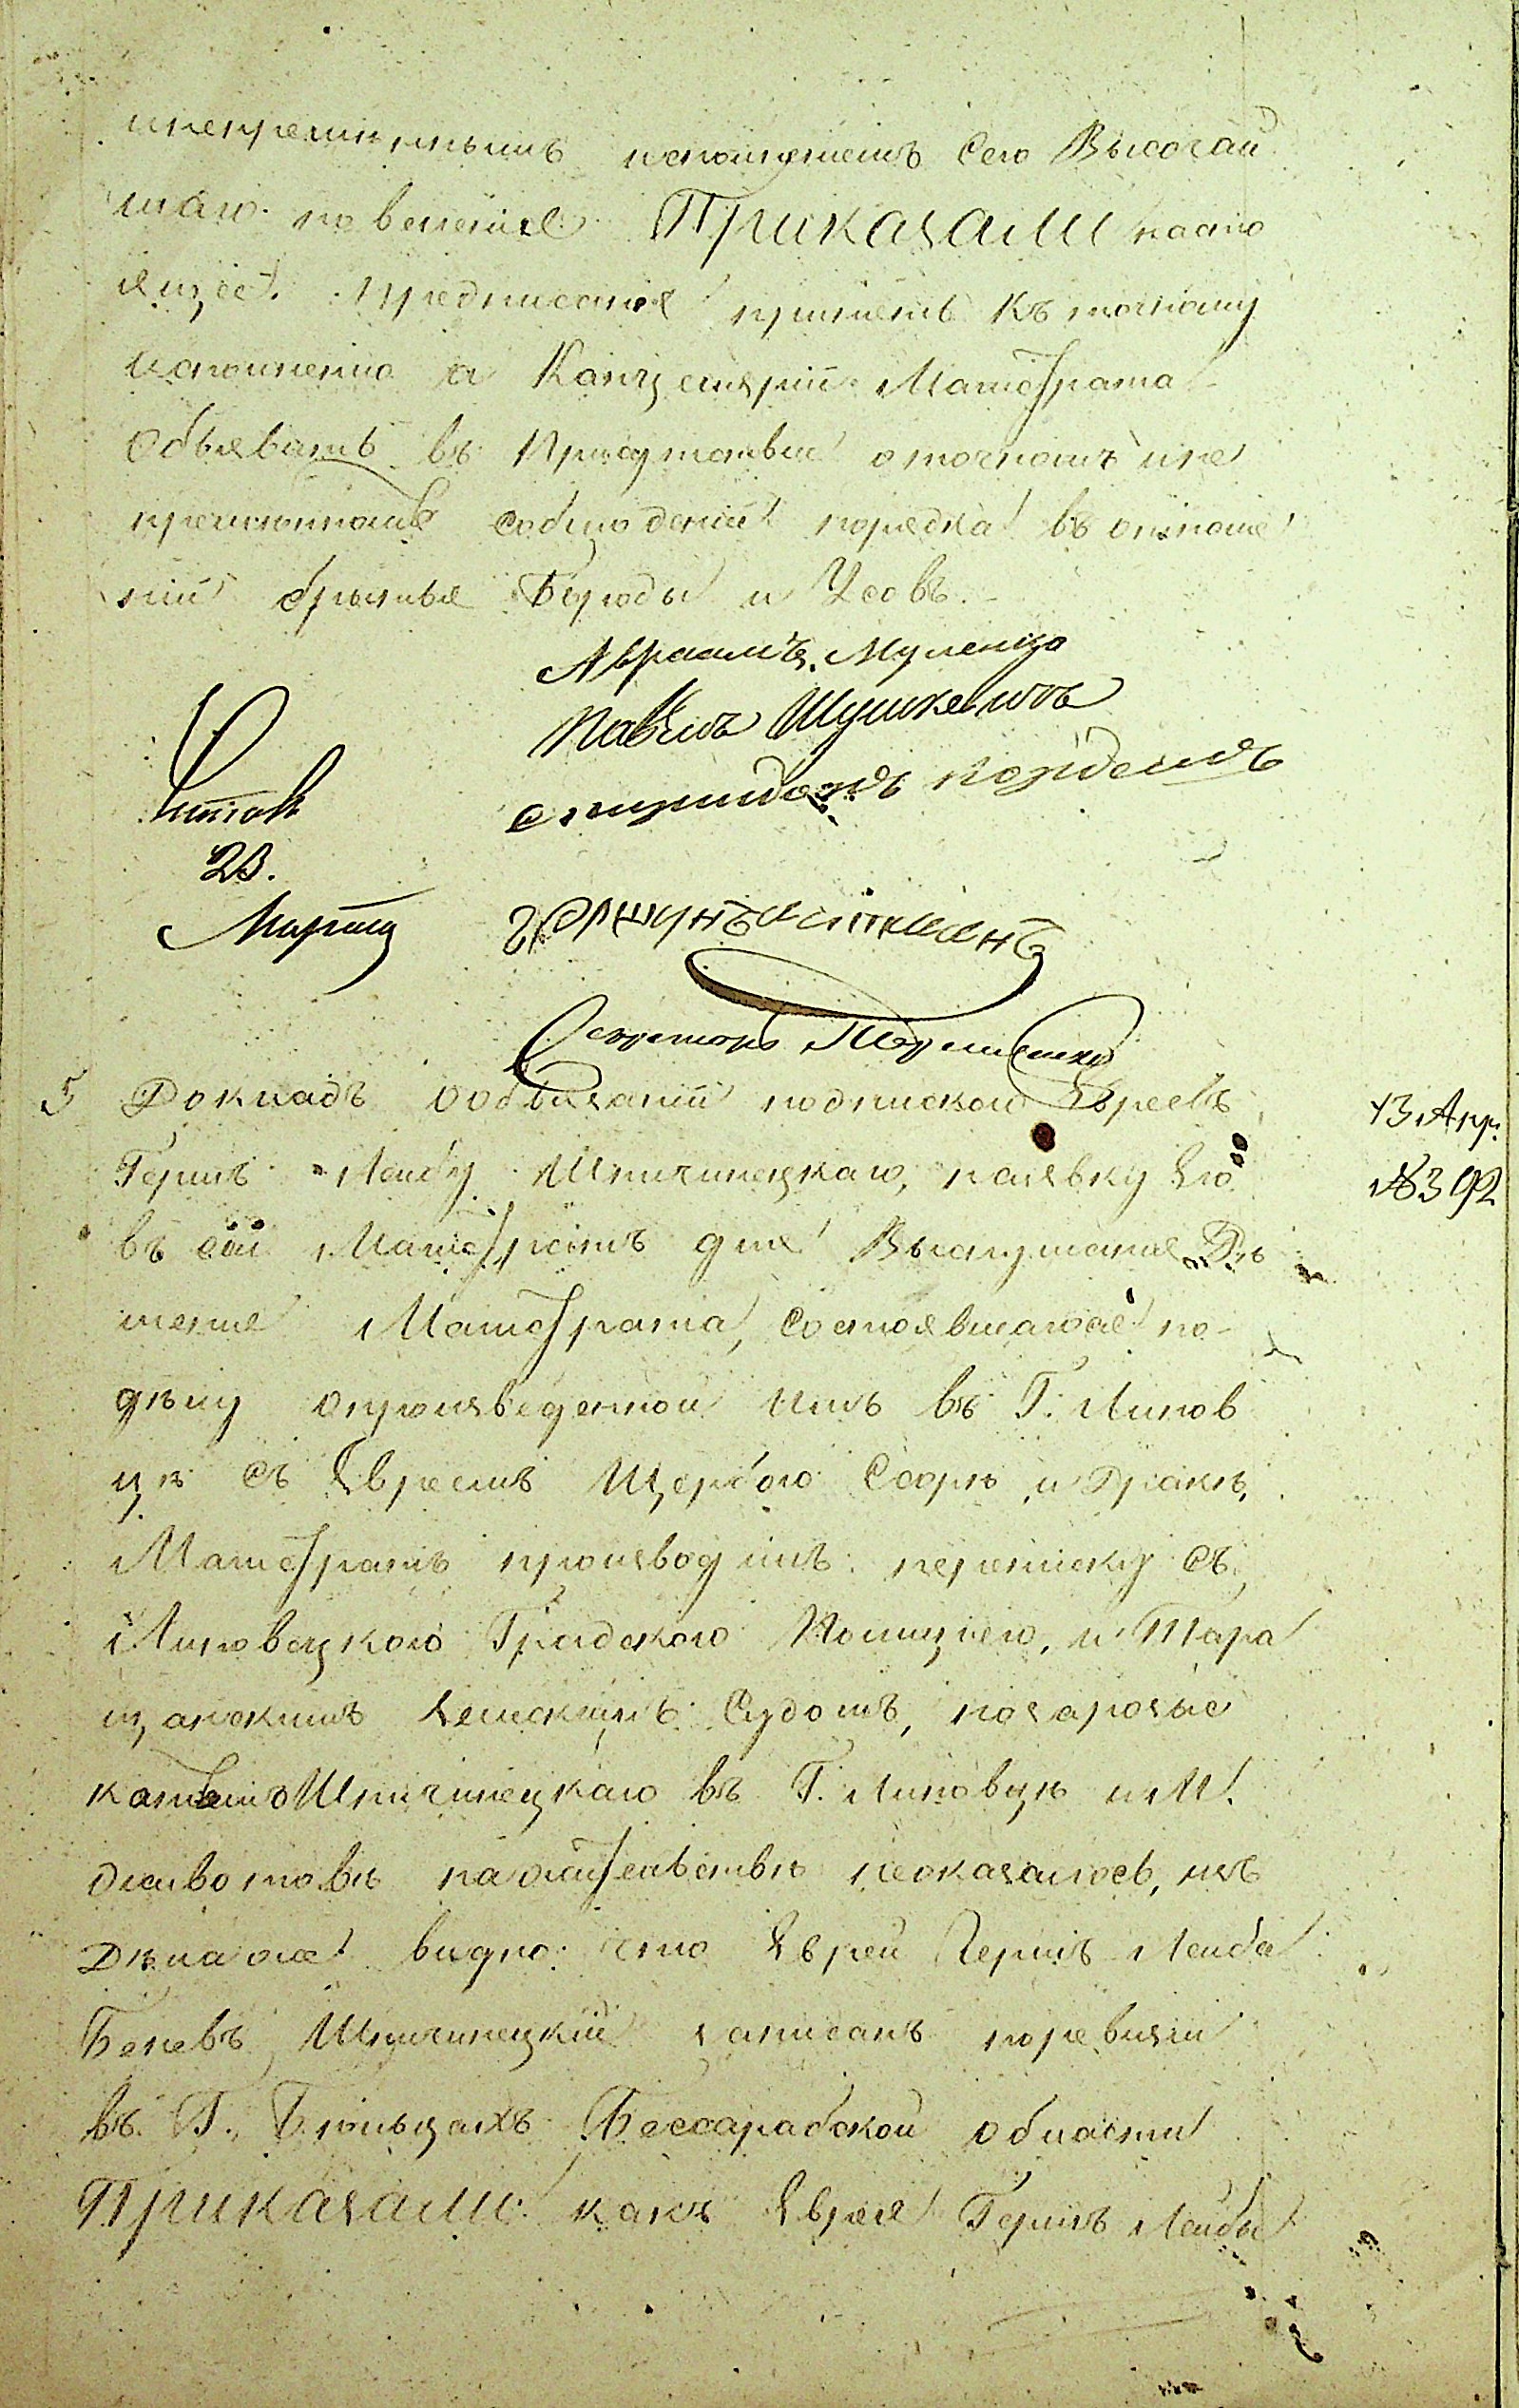 непременнымъ исполнениемъ сего Высочай
шаго повеления. Приказали насто
ящее предписание принять къ точному
исполнению а Канцелярии Магистрата
Объявить въ Присутствие о точномъ и не
премънномъ соблюдении порядка въ отноше
нии бритья Бороды и Усовъ.
Авраамъ Муленко
Павелъ Шушкевичъ
спиридонъ
Читалъ
23.
Марта
Секретарь
5 Докладъ о обязании подпискою Евреевъ
Гершъ Лейбу Шпичинецкаго, на явку Его
въ сей Магистратъ для Выслушания Ръ
шение Магистрата, состоявшагося по
дълу о произведенной имъ въ Г. Липов
цъ съ Евреемъ Щербою Ссоръ и Дракъ,
13 Апр.
№ 392
Магистратъ производилъ переписку съ
Липовецкого Градского Полициею, и Тара
щанскимъ Земскимъ Судомъ, по
Шпичинецкаго въ Г. Липовцъ и М.
Животовъ на жительствъ неоказалось, изъ
Дъла же видно что Еврей Гершъ Лейба
Беневъ Шпичинецкий записанъ по ревизии
въ Г. Бъльцахъ Бессарабской области
Приказали: какъ Еврея Гершъ Лейбы